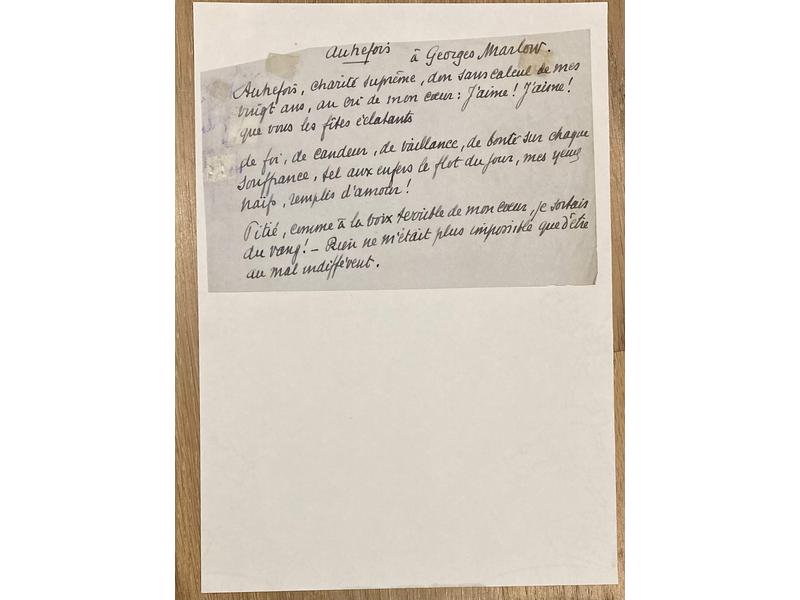 Autrefois à Georges Marlow.
Autrefois, charité suprême, don sans calcul de mes
vingt ans, au cri de mon cœur : J'aime ! J'aime !
que vous les fîtes éclatants
de foi, de candeur, de vaillance, de bonté sur chaque
souffrance, tel aux enfers le flot du jour, mes yeux
naïfs, remplis d'amour !
Pitié, comme à ta voix terrible de mon cœur, je sortais
du rang ! – Rien ne m'était plus impossible que d'être
au mal indifférent.